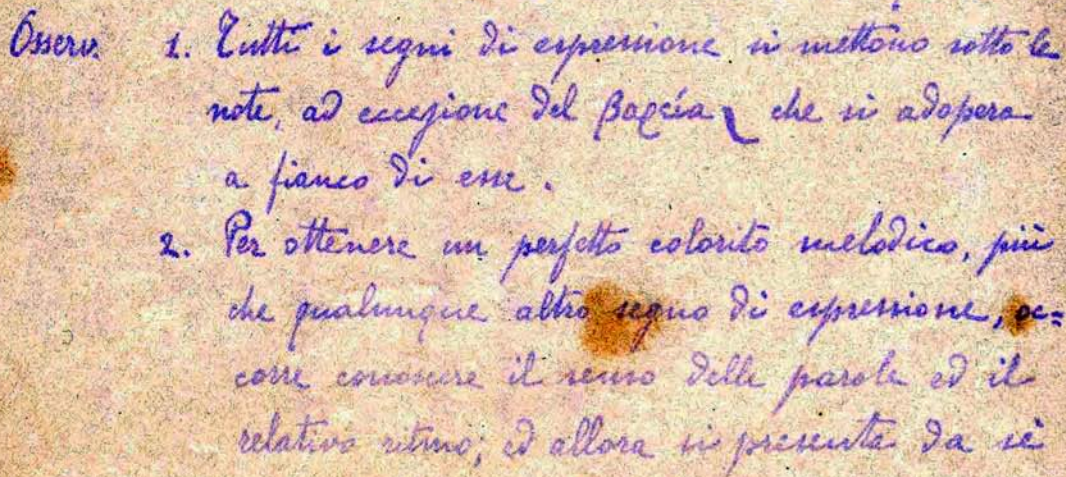 Osserv. 1. Tutti i segni di espressione si mettono sotto le
note, ad eccezione del βαρεῖα che si adopera
a fianco di esse.
2. Per ottenere un perfetto colorito melodico, più
che qualunque altro segno di espressione, oc=
corre conoscere il senso delle parole ed il
relativo ritmo; ed allora si presenta da sè